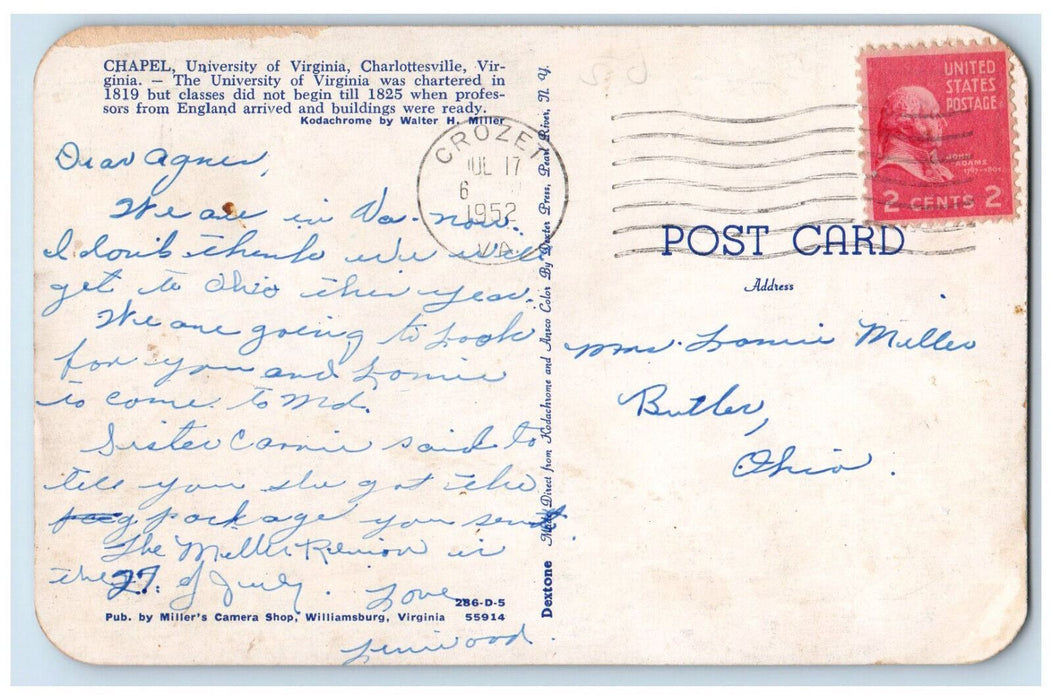 CHAPEL, University of Virginia, Charlottesville, Vir-
ginia. — The University of Virginia was chartered in
1819 but classes did not begin till 1825 when profes-
sors from England arrived and buildings were ready.
Kodachrome by Walter H. Miller
Dear Agnes,
We are in Va. now.
I don't think we will
get to Ohio this year.
We are going to look
for you and Lonnie
to come to Md.
Sister Carrie said to
tell you she got the
package you sent.
The Miller Reunion is
the 27. of July.
Love
Linwood.
286-D-5
Pub. by Miller's Camera Shop, Williamsburg, Virginia 55914
Dextone Made Direct from Kodachrome and Ansco Color By Dexter Press, Pearl River, N. Y.
CROZET
JUL 17
6
1952
VA.
UNITED
STATES
POSTAGE
JOHN
ADAMS
1797-1801
2 CENTS 2
POST CARD
Address
Mrs. Lonnie Miller
Butler,
Ohio.